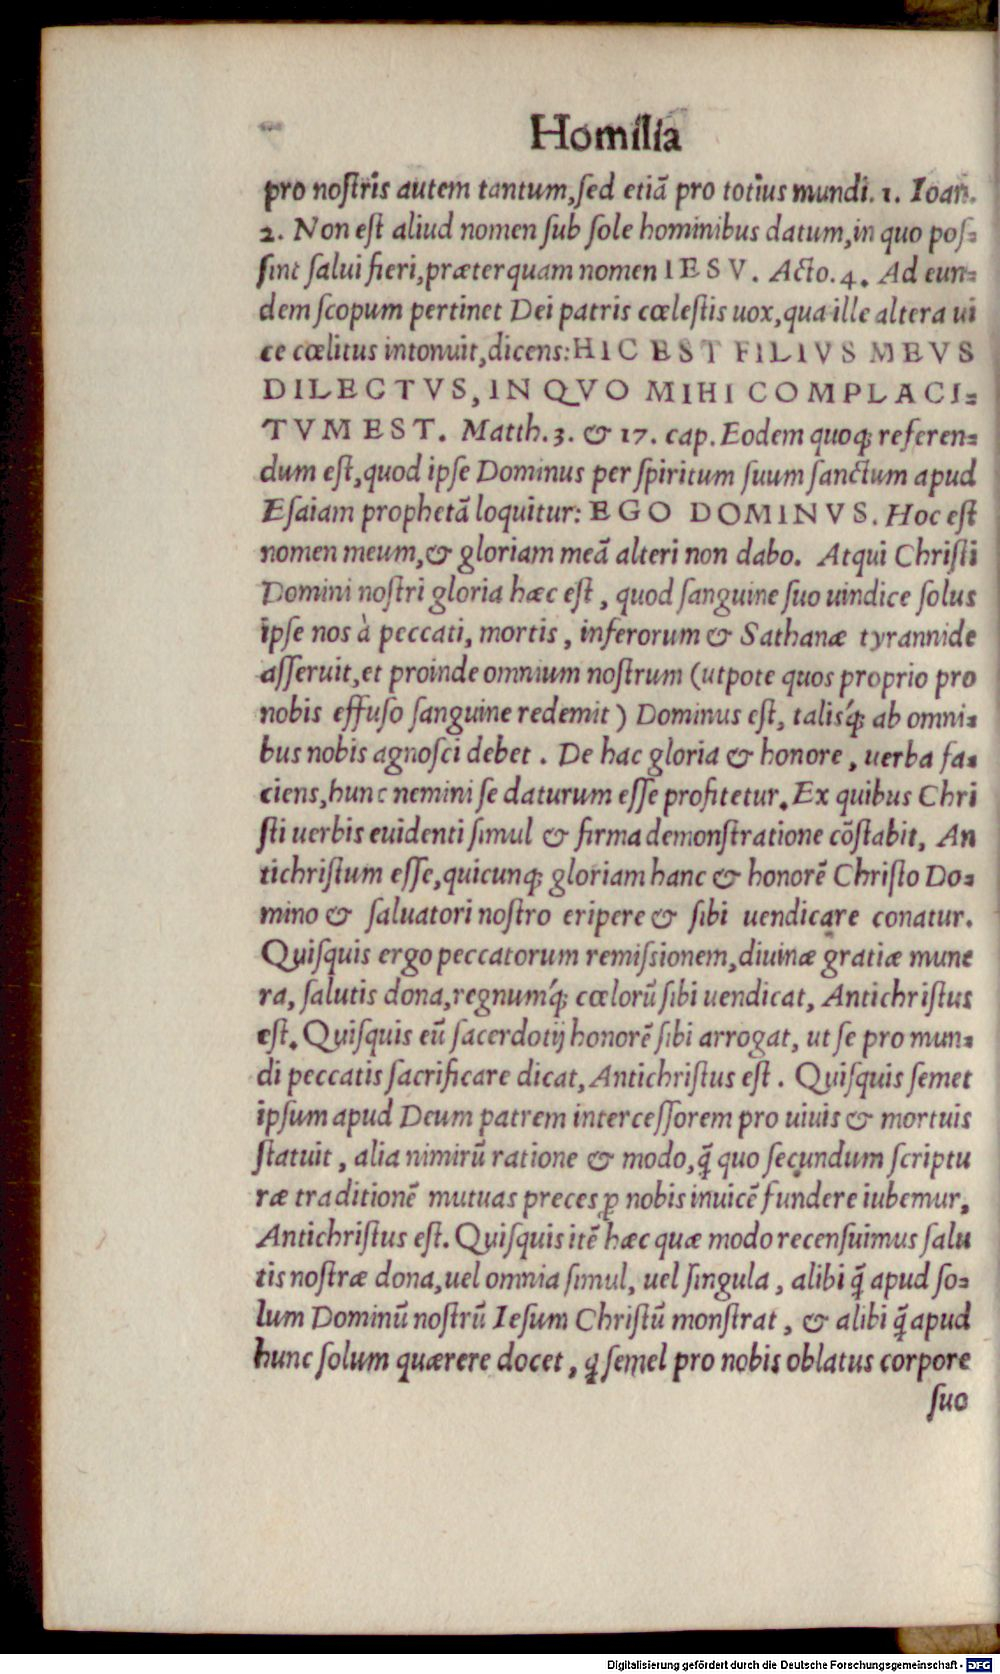 Homilia
pro noſtris autem tantum,ſed etiā pro totius mundi. 1. Ioan.
2. Non est aliud nomen ſub ſole hominibus datum,in quo poſ⸗
ſint ſalui fieri,præterquam nomen IESV. Acto.4. Ad eun⸗
dem ſcopum pertinet Dei patris cœleſtis uox,qua ille altera ui
ce cœlitus intonuit,dicens:HIC EST FILIVS MEVS
DILECTVS,IN QVO MIHI COMPLACI⸗
TVM EST. Matth.3. & 17. cap. Eodem quoq; referen⸗
dum eſt,quod ipſe Dominus per ſpiritum ſuum ſanctum apud
Eſaiam prophetā loquitur: EGO DOMINVS. Hoc eſt
nomen meum,& gloriam meā alteri non dabo. Atqui Chriſti
Domini noſtri gloria hæc eſt, quod ſanguine ſuo uindice ſolus
ipſe nos à peccati, mortis, inferorum & Sathanæ tyrannide
aſſeruit,et proinde omnium noſtrum (utpote quos proprio pro
nobis effuſo ſanguine redemit) Dominus eſt, talisq́; ab omni⸗
bus nobis agnoſci debet. De hac gloria & honore, uerba fa⸗
ciens,hunc nemini ſe daturum eſſe profitetur. Ex quibus Chri
ſti uerbis euidenti ſimul & firma demonſtratione cōſtabit, An
tichriſtum eſſe,quicunq; gloriam hanc & honorē Chriſto Do⸗
mino & ſaluatori noſtro eripere & ſibi uendicare conatur.
Quiſquis ergo peccatorum remiſsionem,diuinæ gratiæ mune
ra, ſalutis dona,regnumq́; cœlorū ſibi uendicat, Antichriſtus
eſt. Quiſquis eū ſacerdotij honorē ſibi arrogat, ut ſe pro mun⸗
di peccatis ſacrificare dicat, Antichriſtus eſt. Quiſquis ſemet
ipſum apud Deum patrem interceſſorem pro uiuis & mortuis
ſtatuit, alia nimirū ratione & modo,q̄ quo ſecundum ſcriptu
ræ traditionē mutuas preces ꝑ nobis inuicē fundere iubemur,
Antichriſtus eſt. Quiſquis itē hæc quæ modo recenſuimus ſalu
tis noſtræ dona,uel omnia ſimul, uel ſingula, alibi q̄ apud ſo⸗
lum Dominū noſtrū Ieſum Chriſtū monſtrat, & alibi q̄ apud
hunc ſolum quærere docet, q ſemel pro nobis oblatus corpore
ſuo
Digitalisierung gefördert durch die Deutsche Forschungsgemeinschaft - DFG